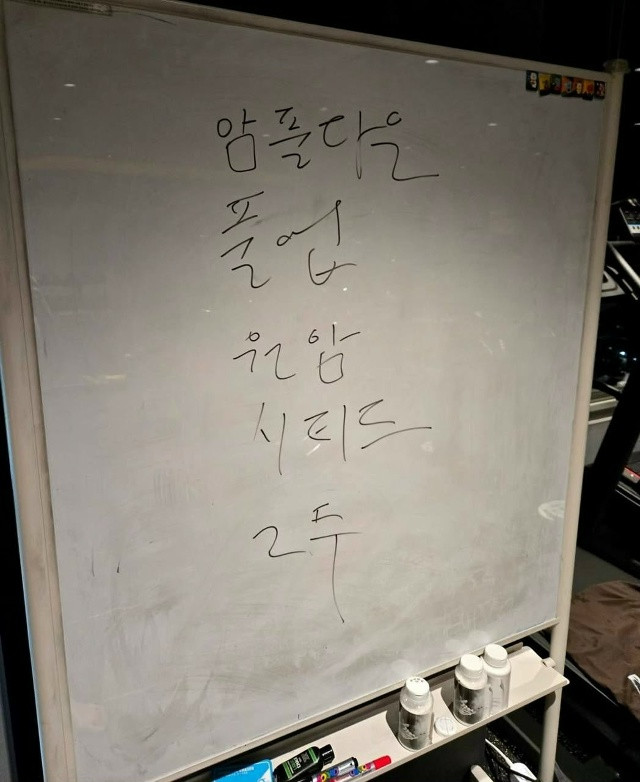 암풀다운
풀업
원암
시티드
2두